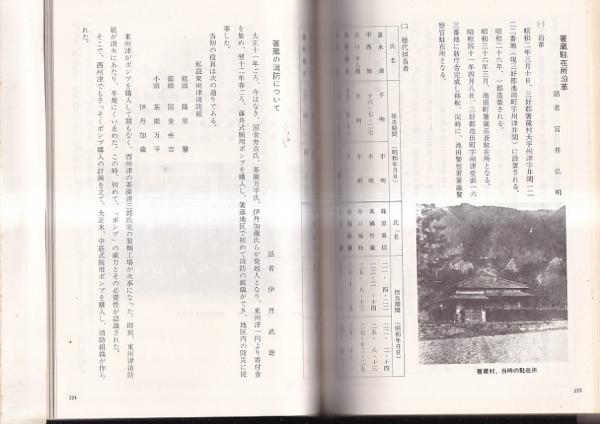 箸蔵駐在所沿革
話者 宮井弘明
㈠ 沿革
昭和二年三月十日、三好郡箸蔵村大字州津字井関一一
二二番地(現三好郡池田町字州津井関)に設置される。
昭和二十六年、一部造築される。
昭和三十六年三月、池田町箸蔵巡査駐在所となる。
昭和四十一年四月八日、三好郡池田町字州津堂面一六
三番地に新庁舎完成し移転、同時に、池田警察署箸蔵警
察官駐在所となる。
箸蔵村、当時の駐在所
㈡ 歴代担当者
氏名
担当期間(昭和年月日)
氏名
担当期間(昭和年月日)
不明
不明
不明
225
箸蔵の消防について
話者 伊丹武雄
大正十一年ごろ、今はなき、国金弁吉氏、茶園万平氏、伊丹加蔵氏らが発起人となり、東州津一円より寄付金
を集め、翌十二年春ごろ、藤井式腕用ポンプを購入し、箸蔵地区で初めて消防の組織ができ、地区内の防災に従
事した。
当初の役員は次の通りである。
私設東州津消防組
組頭 篠原馨
部頭 国金弁吉
小頭 茶園万平 伊丹加蔵
東州津がポンプを購入して間もなく、西州津の茶園清三郎氏宅の製麺工場が火事になった。即刻、東州津消防
組が消火にあたり、半焼にくい止めた。この時、初めて、「ポンプ」の威力とその必要性が認識された。
そこで、西州津でもさっそくポンプ購入の計画を立て、大正末、中筋式腕用ポンプを購入し、消防組織が作ら
れた。
224